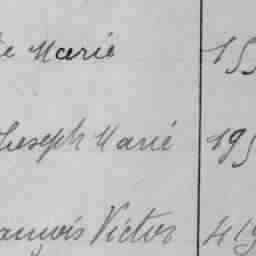 Marie 155
Joseph Marie 195
ançois Victor 419